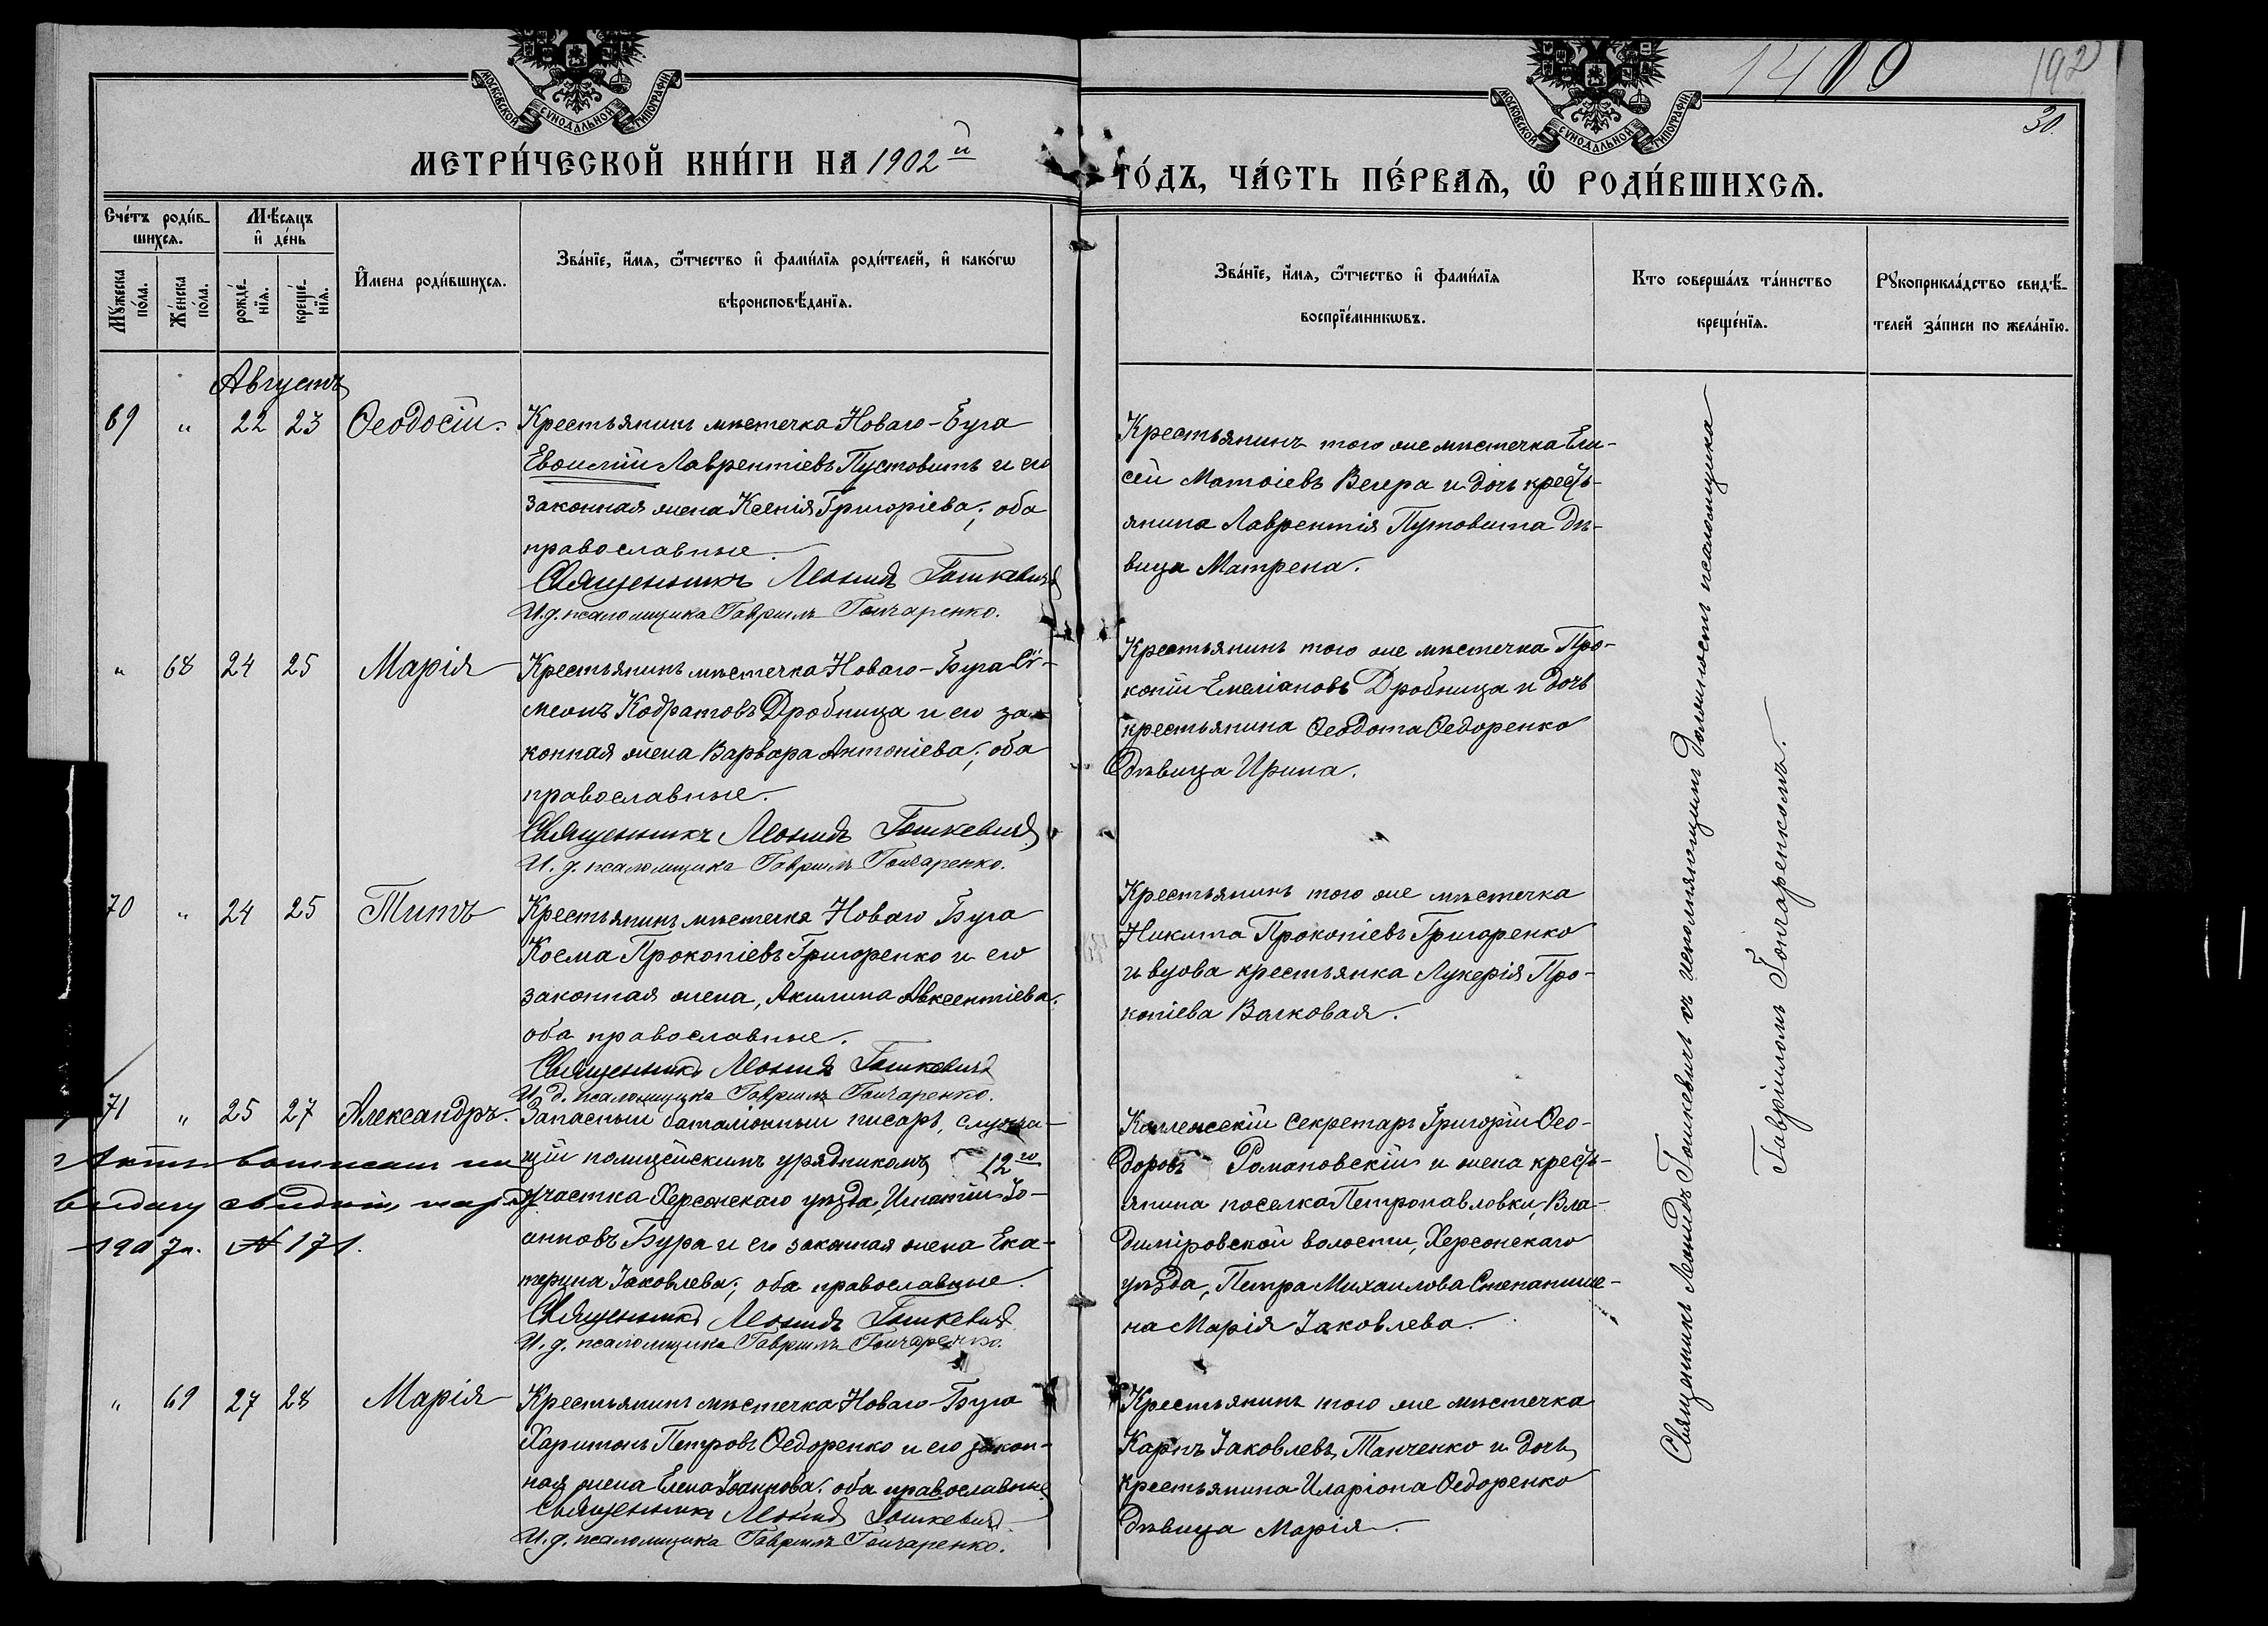 МОСКОВСКОЙ СУНОДАЛЬНОЙ ТИПОГРАФІИ
МОСКОВСКОЙ СУНОДАЛЬНОЙ ТИПОГРАФІИ
1400
192
30.
МЕТРИ́ЧЕСКОЙ КНИ́ГИ НА 1902 й
ГО́ДЪ, ЧА́СТЬ ПЕ́РВАЯ, Ѡ҆ РОДИ́ВШИХСЯ.
Сче́тъ роди́в-
шихся.
Мѣ́сяцъ
и҆ де́нь
Мꙋ́жеска по́ла.
Же́нска по́ла.
рожде́-
нїя.
креще́-
нїя.
И҆мена роди́вшихся.
Зва́нїе, и҆́мя, ѻ҆́тчество и҆ фами́лїя роди́телей, и҆ како́гѡ
вѣроисповѣ́данїя.
Зва́нїе, и҆́мя, ѻ҆́тчество и҆ фами́лїя
воспрїе́мникѡвъ.
Кто соверша́лъ та́инство
креще́нїя.
Рꙋкоприкла́дство свидѣ́-
телей за́писи по жела́нїю.
Августъ
69 " 22 23 Ѳеодосій.
Крестьянинъ мѣстечка Новаго-Буга
Евѳимій Лаврентіевъ Пустовитъ и его
законная жена Ксенія Григоріева; оба
православные.
Священникъ Леонидъ Гошкевичъ
И. д. псаломщика Гавріилъ Гончаренко.
Крестьянинъ того же мѣстечка Ели-
сей Матѳіевъ Вегера и дочь кресть-
янина Лаврентія Пустовита дѣ-
вица Матрена.
" 68 24 25 Марія
Крестьянинъ мѣстечка Новаго-Буга Сѵ-
меонъ Кодратовъ Дробница и его за-
конная жена Варвара Антоніева; оба
православные.
Священникъ Леонидъ Гошкевичъ
И. д. псаломщика Гавріилъ Гончаренко.
Крестьянинъ того же мѣстечка Про-
копій Емеліановъ Дробница и дочь
крестьянина Ѳеодота Ѳедоренко
дѣвица Ирина.
70 " 24 25 Титъ
Крестьянинъ мѣстечка Новаго Буга
Косма Прокопіевъ Григоренко и его
законная жена, Акилина Авксентіева;
оба православные.
Священникъ Леонидъ Гошкевичъ
И. д. псаломщика Гавріилъ Гончаренко.
Крестьянинъ того же мѣстечка
Никита Прокопіевъ Григоренко
и вдова крестьянка Лукерія Про-
копіева Волковая.
71 " 25 27 Александръ.
Запасный баталіонный писарь, служа-
щій полицейскимъ урядникомъ 12го
участка Херсонскаго уѣзда, Игнатій Іо-
анновъ Бура и его законная жена Ека-
терина Іаковлева; оба православные.
Священникъ Леонидъ Гошкевичъ
И. д. псаломщика Гавріилъ Гончаренко.
выдачу
1907 г. № 171.
Коллежскій секретарь Григорій Ѳео-
доровъ Романовскій и жена кресть-
янина поселка Петропавловки, Вла-
диміровской волости, Херсонскаго
уѣзда, Петра Михаилова Степанише-
на Марія Іаковлева.
" 69 27 28 Марія
Крестьянинъ мѣстечка Новаго-Буга
Харитонъ Петровъ Ѳедоренко и его закон-
ная жена Елена Іоаннова; оба православные.
Священникъ Леонидъ Гошкевичъ
И. д. псаломщика Гавріилъ Гончаренко.
Крестьянинъ того же мѣстечка
Карпъ Іаковлевъ Танченко и дочь
крестьянина Иларіона Ѳедоренко
дѣвица Марія.
Священникъ Леонидъ Гошкевичъ съ исполняющимъ должность псаломщика
Гавріиломъ Гончаренкомъ.